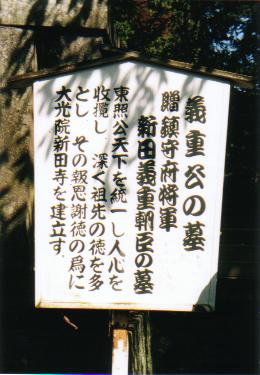 義重公の墓
贈鎮守府将軍
新田義重朝臣の墓
東照公天下を統一し人心を
收攬し 深く祖先の徳を多
とし その報恩謝徳の為に
大光院新田寺を建立す